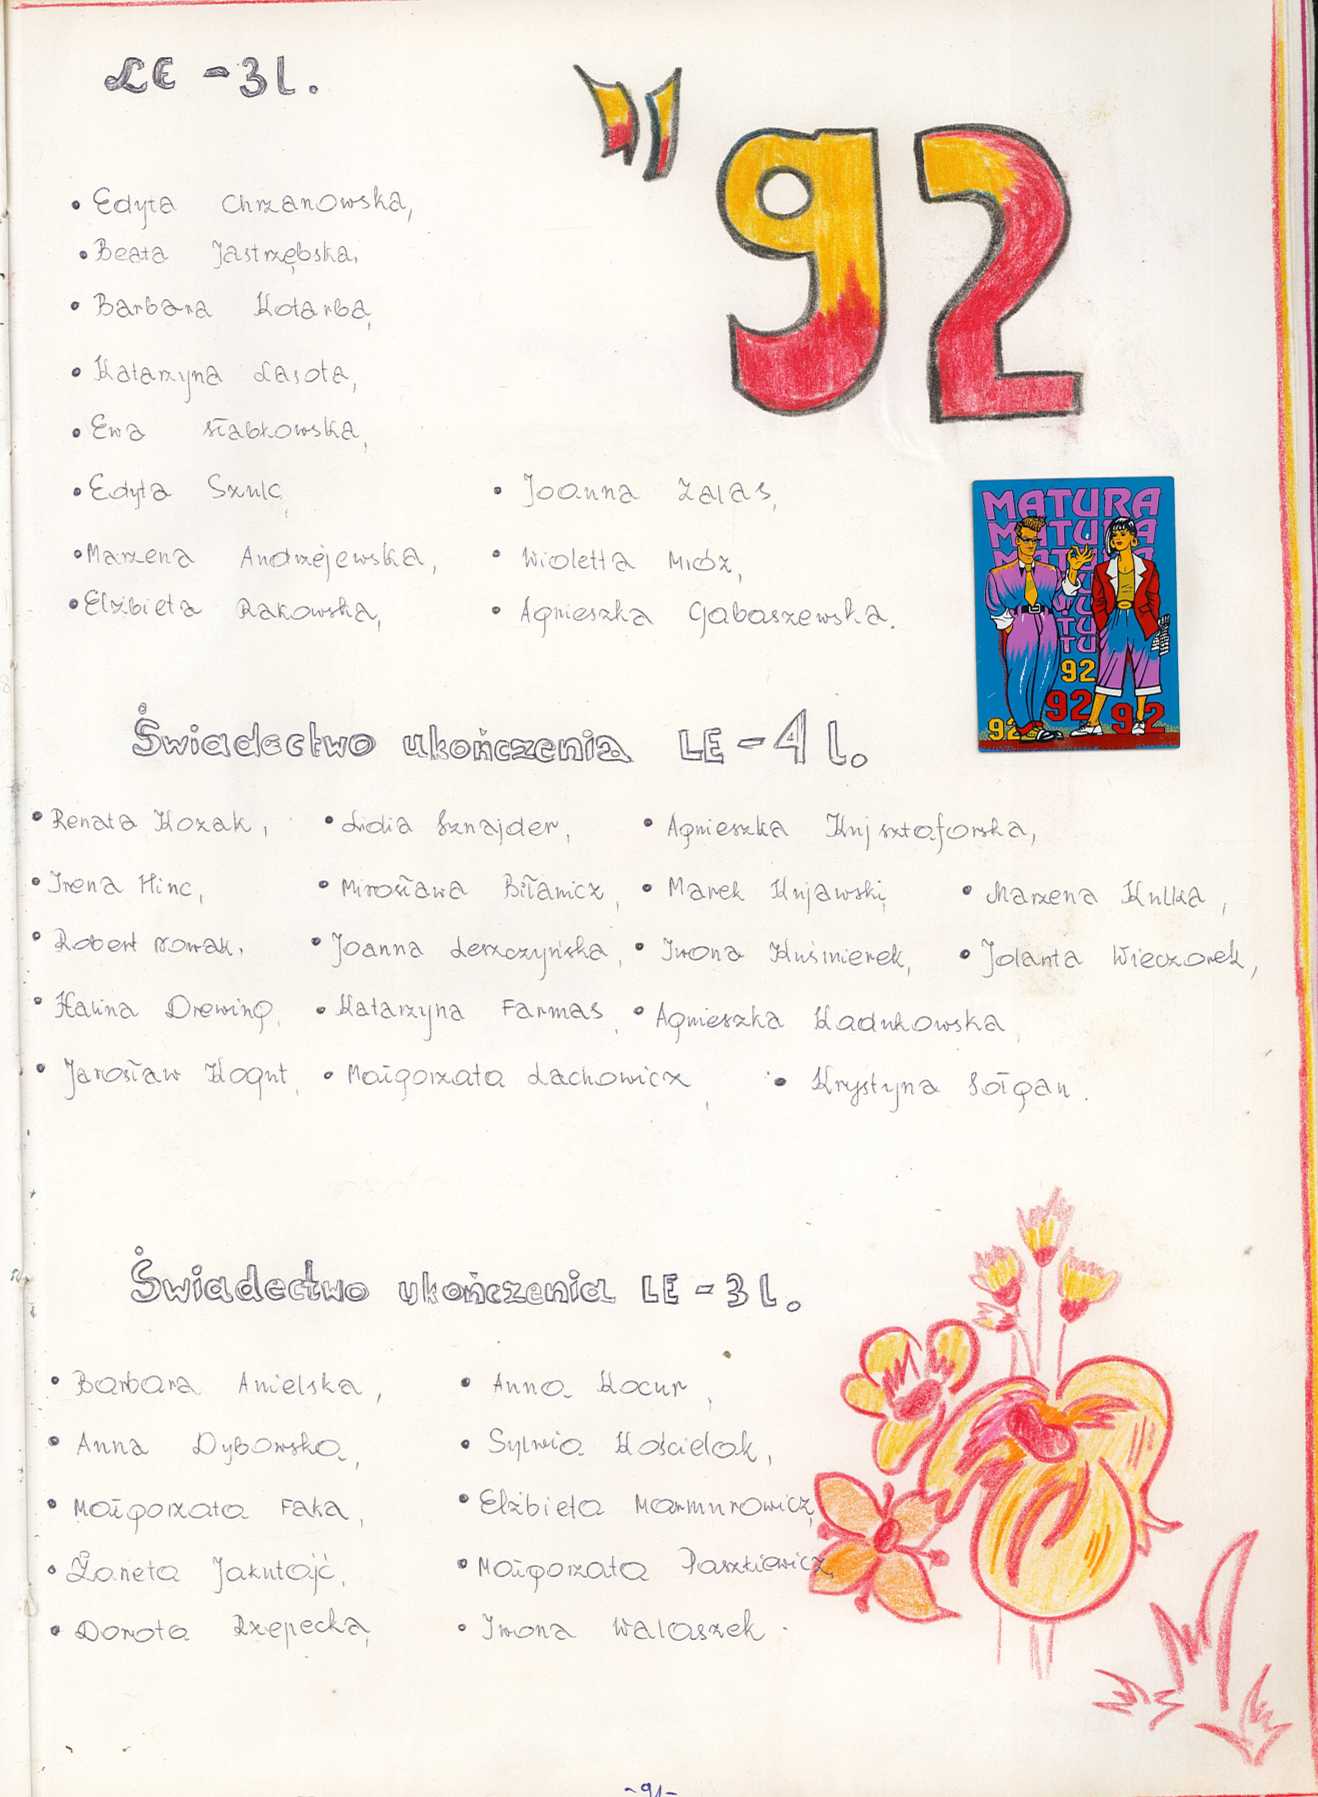 LE - 3 l.
"92
• Edyta Chrzanowska,
• Beata Jastrzębska,
• Barbara Kotarba,
• Katarzyna Lasota,
• Ewa Słabkowska,
• Edyta Szulc, • Joanna Zalas,
• Marzena Andrzejewska, • Wioletta Mróz,
• Elżbieta Rakowska, • Agnieszka Gabaszewska.
MATURA
MATURA
MATURA
TU
TU
TU
92
92
92
92
Świadectwo ukończenia LE - 4 l.
• Renata Kozak, • Lidia Sznajder, • Agnieszka Krysztoforska,
• Irena Hinc, • Mirosława Biłanicz, • Marek Kujawski, • Marzena Kulka,
• Robert Nowak, • Joanna Leszczyńska, • Iwona Kuśnierek, • Jolanta Wieczorek,
• Halina Drewing, • Katarzyna Farmas, • Agnieszka Kadukowska,
• Jarosław Kogut, • Małgorzata Lachowicz, • Krystyna Sołgan.
Świadectwo ukończenia LE - 3 l.
• Barbara Anielska, • Anna Kocur,
• Anna Dybowska, • Sylwia Kościelak,
• Małgorzata Faka, • Elżbieta Marmurowicz,
• Żaneta Jakutajć, • Małgorzata Paszkiewicz,
• Dorota Rzepecka, • Iwona Walaszek.
-91-